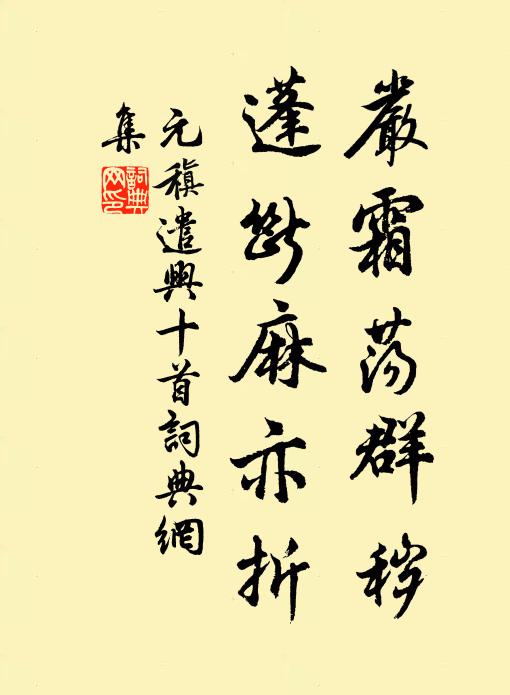 嚴霜蕩群穢
蓬斷麻亦折
元稹遣興十首詞典網
集
詞典
网印